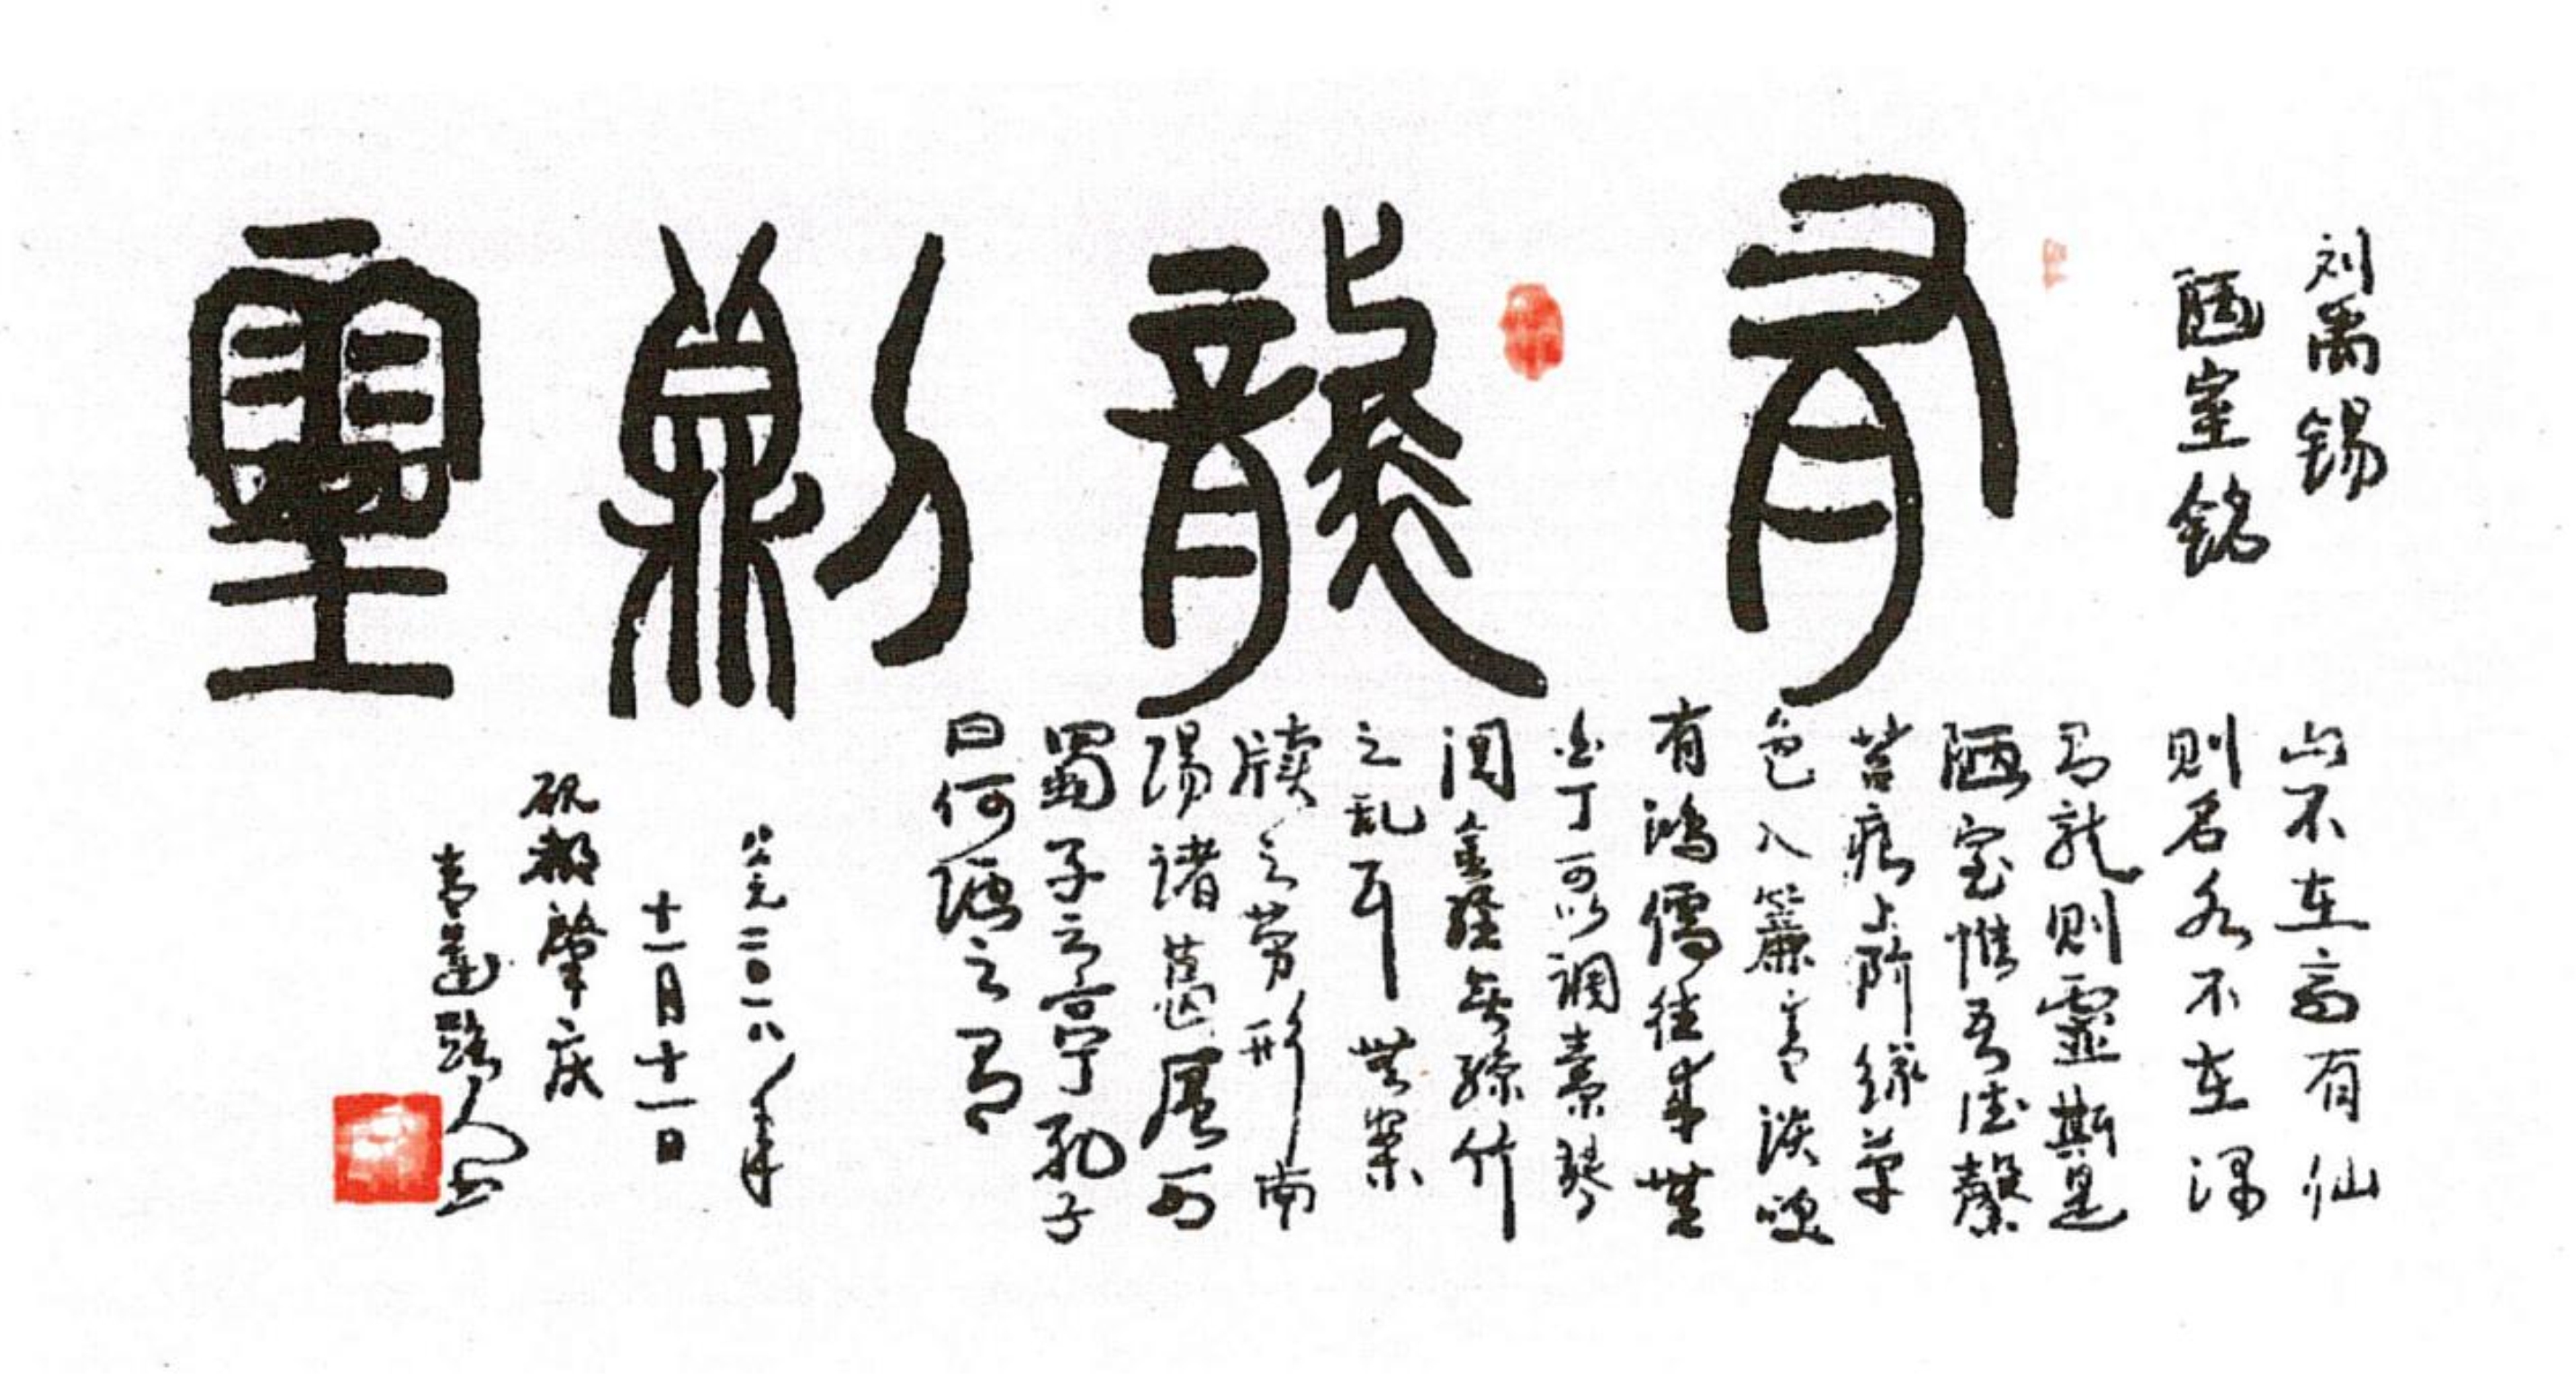 刘禹錫
陋室銘
有龍則靈
山不在高有仙
则名水不在深
有龙则靈斯是
陋室惟吾德馨
苔痕上阶绿草
色入簾青谈笑
有鸿儒往来無
白丁可以调素琴
阅金经無丝竹
之乱耳無案
牍之劳形南
阳诸葛庐西
蜀子云亭孔子
曰何陋之有
公元二〇一八年
十一月十一日
砚都肇庆
青莲路人书